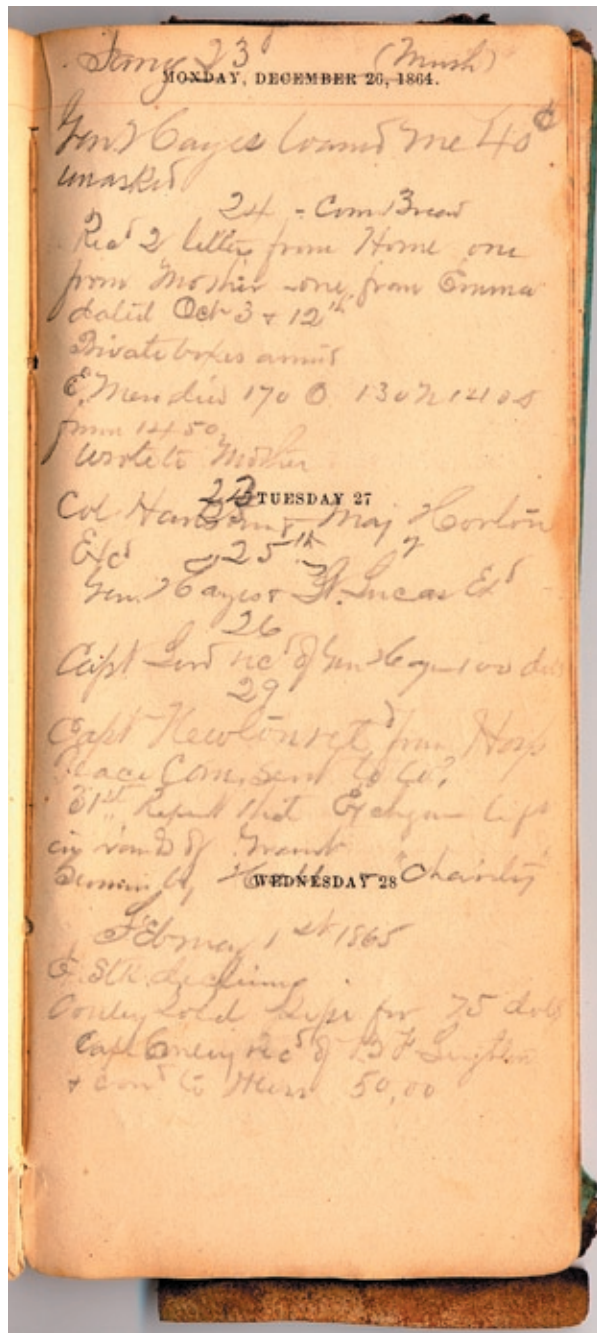 Jany 23 (Mush)
MONDAY, DECEMBER 26, 1864.
Gen Hayes loaned me 40
unasked
24 - Corn Bread
Recd 2 letters from Home one
from Mother - one from Emma
dated Oct 3 & 12th
Private boxes
E. Men died 170 O 130
from 1450
wrote to Mother
TUESDAY 27
Col Maj Horton
Excd 25th
Gen. Hayes & Lt. Lucas Exd
26
Capt recd of Gen Hays 100 dols
29
Capt Newlon retd from Hosp
Com. sent to Co.
31st Report that Exchange left
in hands of Grant
Sermon by "Charity"
WEDNESDAY 28
February 1st 1865
declining
Conley sold for 75 dols
Capt Conley recd of B F
& to 50,00